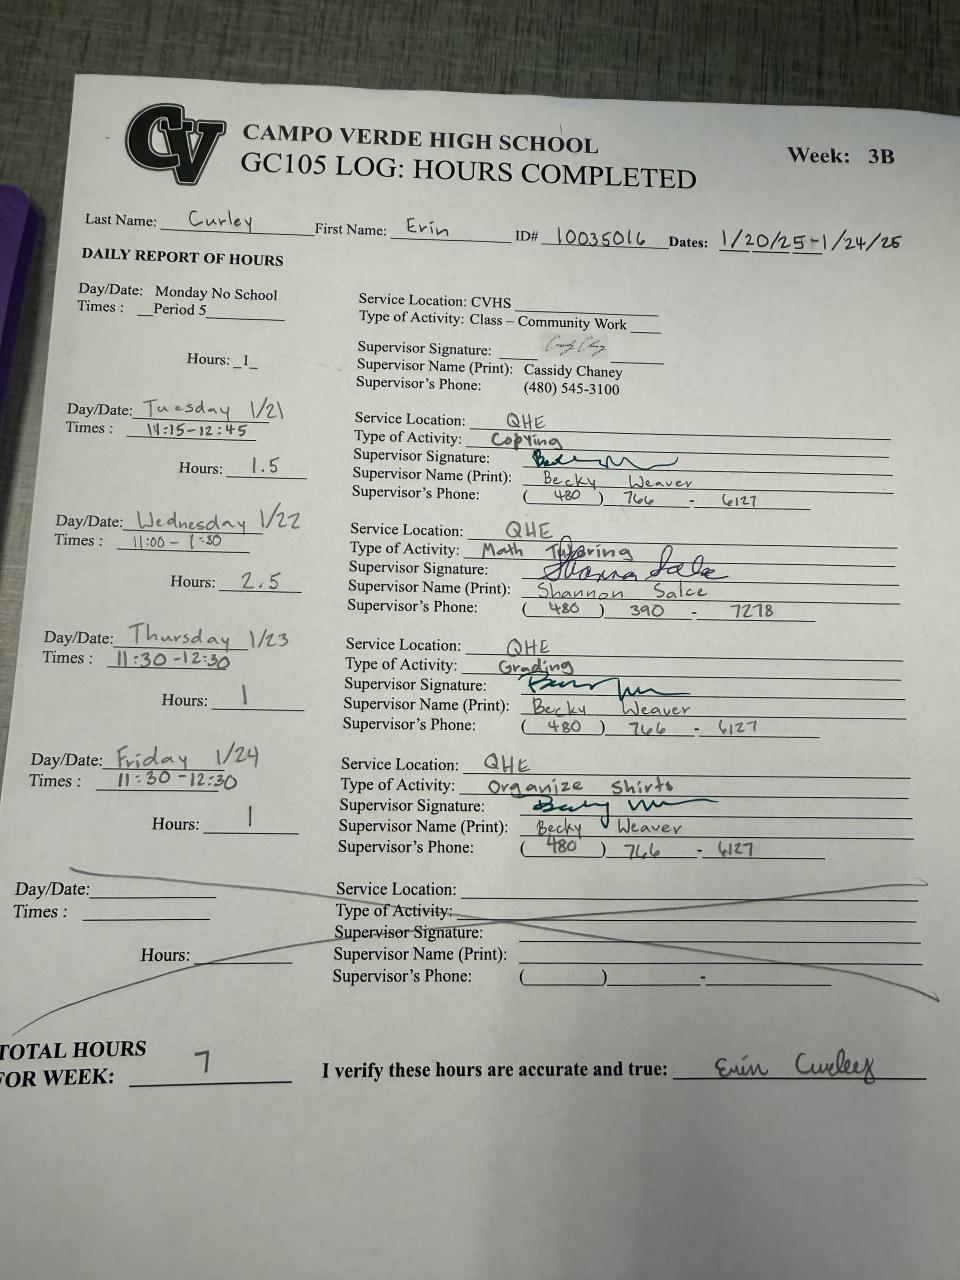 CV
CAMPO VERDE HIGH SCHOOL
GC105 LOG: HOURS COMPLETED
Week: 3B
Last Name: Curley First Name: Erin ID# 10035016 Dates: 1/20/25-1/24/25
DAILY REPORT OF HOURS
Day/Date: Monday No School
Times : Period 5
Hours: 1
Service Location: CVHS
Type of Activity: Class – Community Work
Supervisor Signature: Cassidy Chaney
Supervisor Name (Print): Cassidy Chaney
Supervisor's Phone: (480) 545-3100
Day/Date: Tuesday 1/21
Times : 11:15-12:45
Hours: 1.5
Service Location: QHE
Type of Activity: Copying
Supervisor Signature:
Supervisor Name (Print): Becky Weaver
Supervisor's Phone: (480) 766 - 6127
Day/Date: Wednesday 1/22
Times : 11:00 - 1:30
Hours: 2.5
Service Location: QHE
Type of Activity: Math Tutoring
Supervisor Signature: Shannon Salce
Supervisor Name (Print): Shannon Salce
Supervisor's Phone: (480) 390 - 7278
Day/Date: Thursday 1/23
Times : 11:30-12:30
Hours: 1
Service Location: QHE
Type of Activity: Grading
Supervisor Signature:
Supervisor Name (Print): Becky Weaver
Supervisor's Phone: (480) 766 - 6127
Day/Date: Friday 1/24
Times : 11:30-12:30
Hours: 1
Service Location: QHE
Type of Activity: Organize Shirts
Supervisor Signature:
Supervisor Name (Print): Becky Weaver
Supervisor's Phone: (480) 766 - 6127
Day/Date:
Times :
Hours:
Service Location:
Type of Activity:
Supervisor Signature:
Supervisor Name (Print):
Supervisor's Phone: ( ) -
TOTAL HOURS
FOR WEEK: 7
I verify these hours are accurate and true: Erin Curley